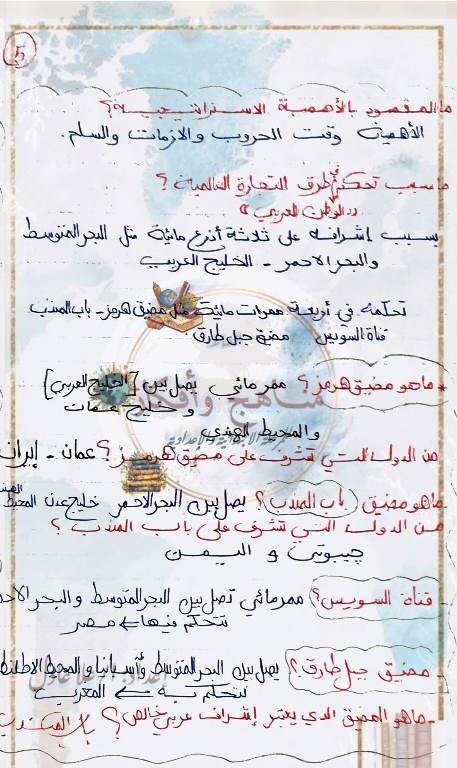 5
ما المقصود بالأهمية الاستراتيجية؟
الأهمية وقت الحروب والازمات والسلم.
ما سبب تحكم في طرق التجارة العالمية؟
((الوطن العربي))
بسبب إشرافه على ثلاثة أذرع مائية مثل البحر المتوسط
والبحر الاحمر - الخليج العربي
تحكمه في أربعة ممرات مائية مثل مضيق هرمز - باب المندب
قناة السويس مضيق جبل طارق
* ما هو مضيق هرمز؟ ممر مائي يصل بين [الخليج العربي]
و خليج عمان
والمحيط الهندي
مناهج وأفكار
من الدول التي تشرف على مضيق هرمز؟ عمان - إيران
- ما هو مضيق (باب المندب)؟ يصل بين البحر الاحمر خليج عدن المحيط الهندي
من الدول التي تشرف على باب المندب؟
جيبوتي و اليمن
- قناة السويس؟ ممر مائي تصل بين البحر المتوسط والبحر الاحمر
تتحكم فيها مصر
- مضيق جبل طارق؟ يصل بين البحر المتوسط وأسبانيا والمحيط الاطلنطي
تتحكم فيه المغرب
- ما هو المضيق الذي يعتبر إشراف عربي خالص؟ باب المندب